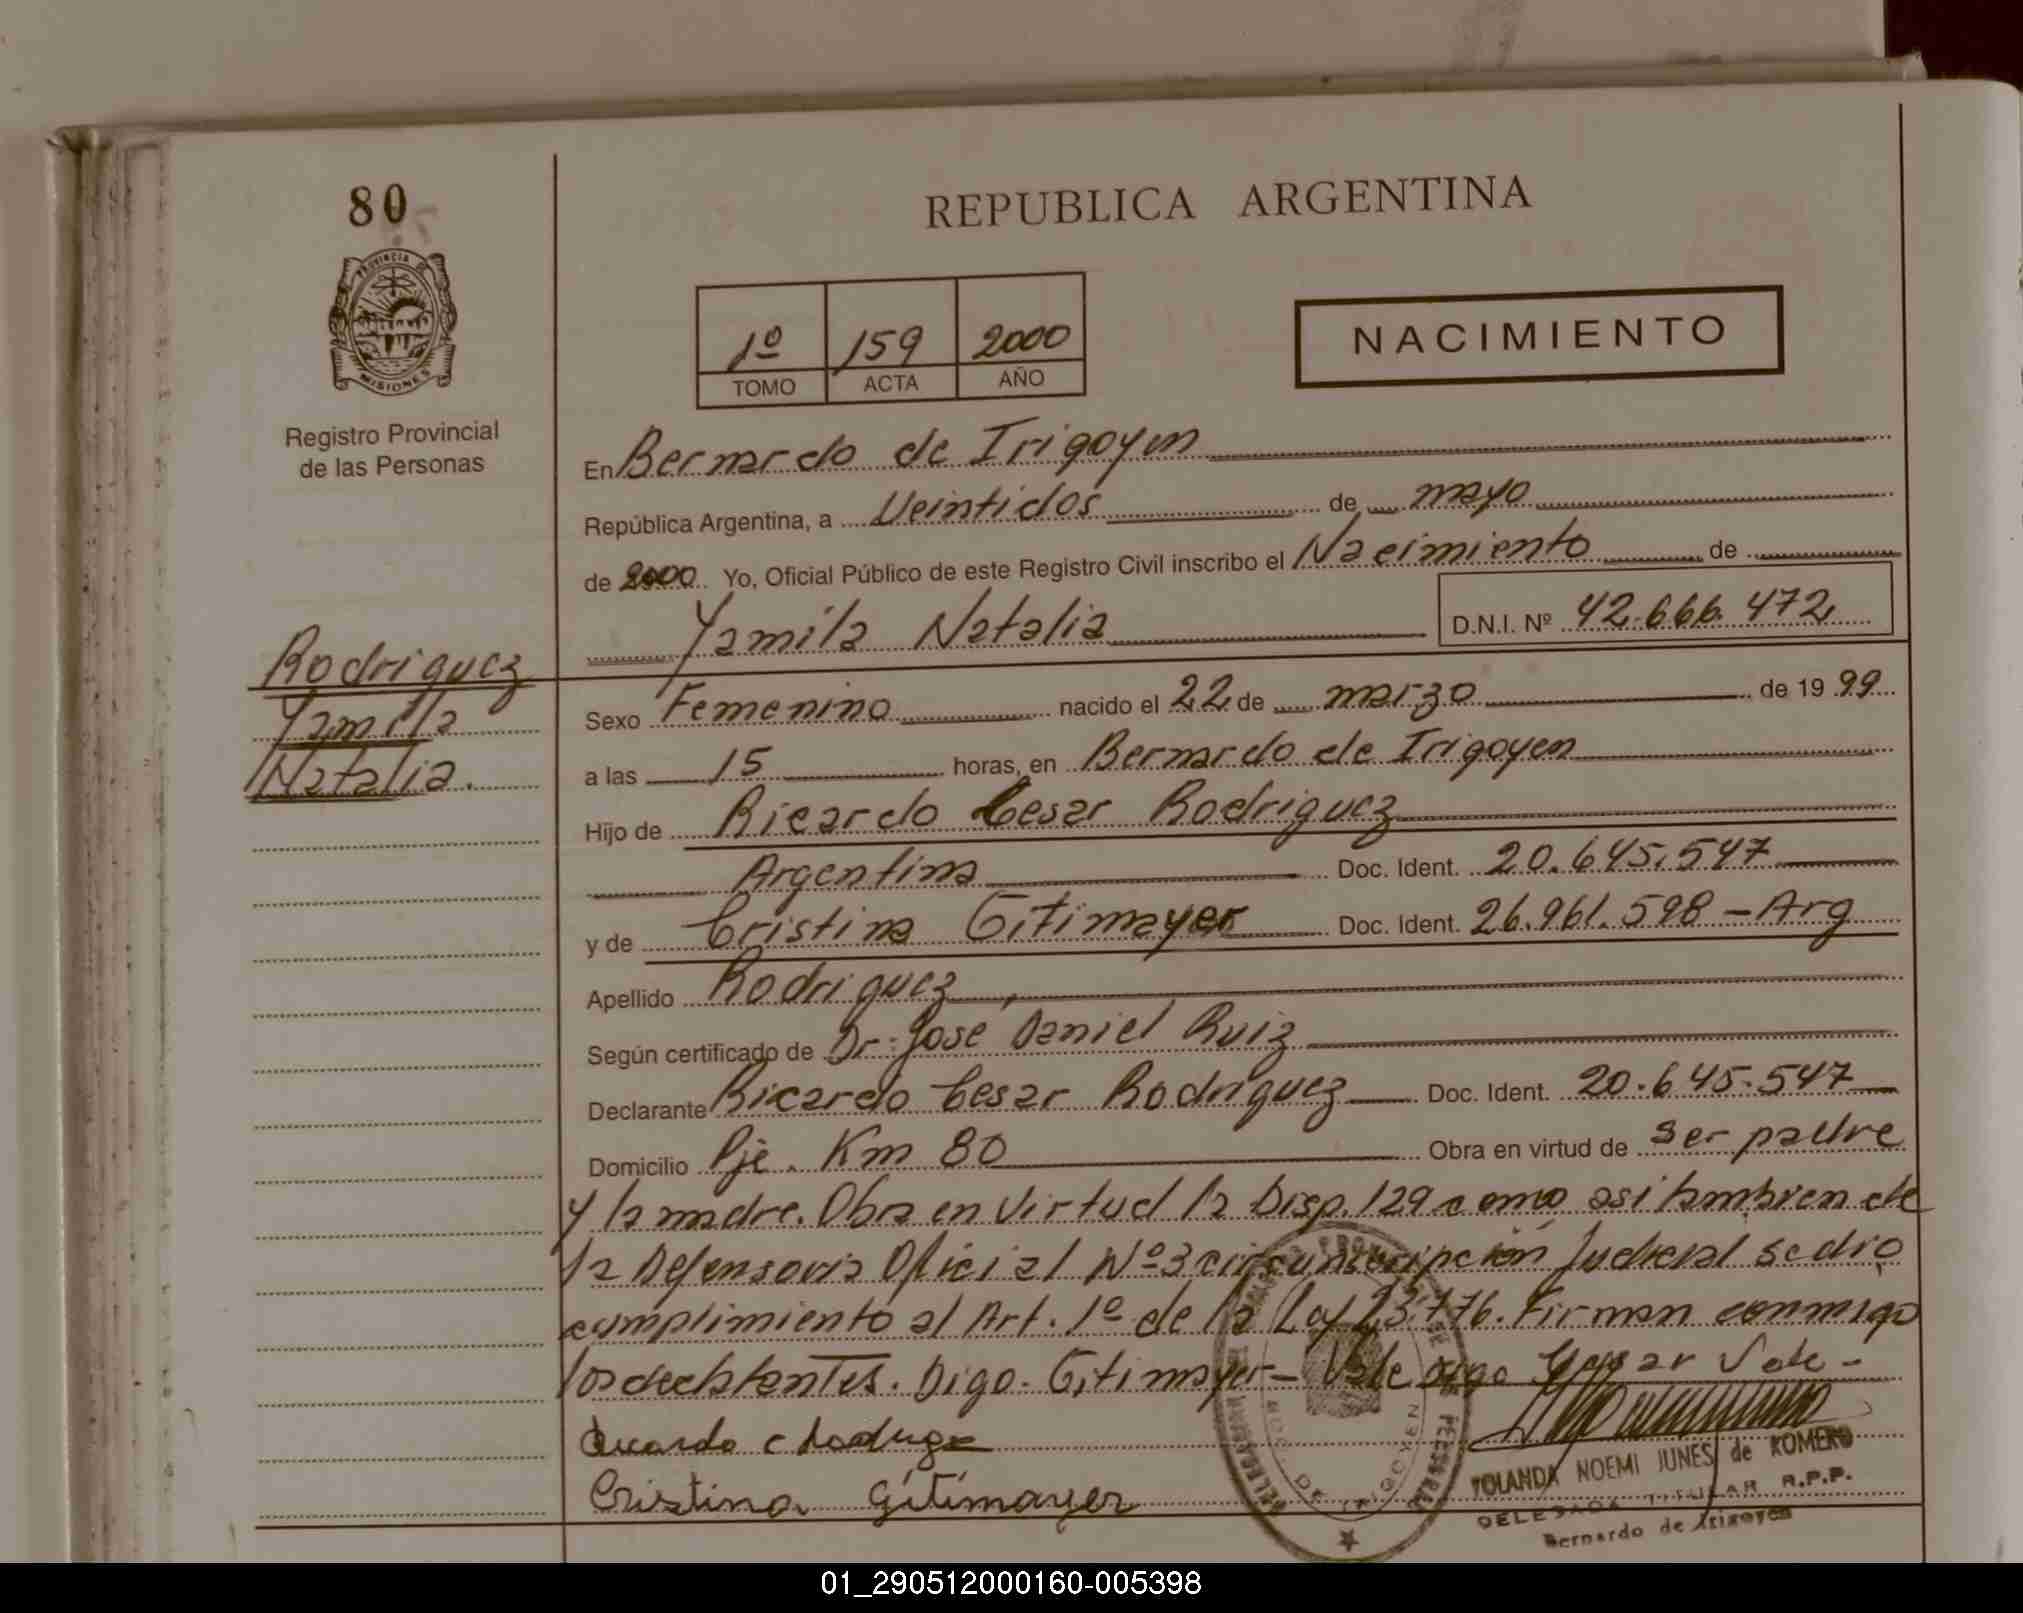 80
REPUBLICA ARGENTINA
PROVINCIA DE
MISIONES
Registro Provincial
de las Personas
1º 159 2000
TOMO ACTA AÑO
NACIMIENTO
En Bernardo de Irigoyen
República Argentina, a Veintidos de mayo
de 2000 Yo, Oficial Público de este Registro Civil inscribo el Nacimiento de
Yamila Natalia D.N.I. Nº 42.666.472
Rodriguez
Yamila
Natalia.
Sexo Femenino nacido el 22 de marzo de 1999
a las 15 horas, en Bernardo de Irigoyen
Hijo de Ricardo Cesar Rodriguez
Argentina Doc. Ident. 20.645.547
y de Cristina Gitimayer Doc. Ident. 26.961.598 - Arg
Apellido Rodriguez
Según certificado de Dr. Jose Daniel Ruiz
Declarante Ricardo Cesar Rodriguez Doc. Ident. 20.645.547
Domicilio Pje. Km 80 Obra en virtud de ser padre
y la madre. Obra en virtud la Disp. 129 como asi tambien de
la Defensoria Oficial Nº3 circunscripcion Judicial se dio
cumplimiento al Art. 1º de la Ley 23.776. Firman conmigo
los declarantes. Digo. Gitimayer - Vale Vale -
Cristina Gitimayer
YOLANDA NOEMI JUNES de ROMERO
DELEGADA TITULAR R.P.P.
Bernardo de Irigoyen
01_290512000160-005398